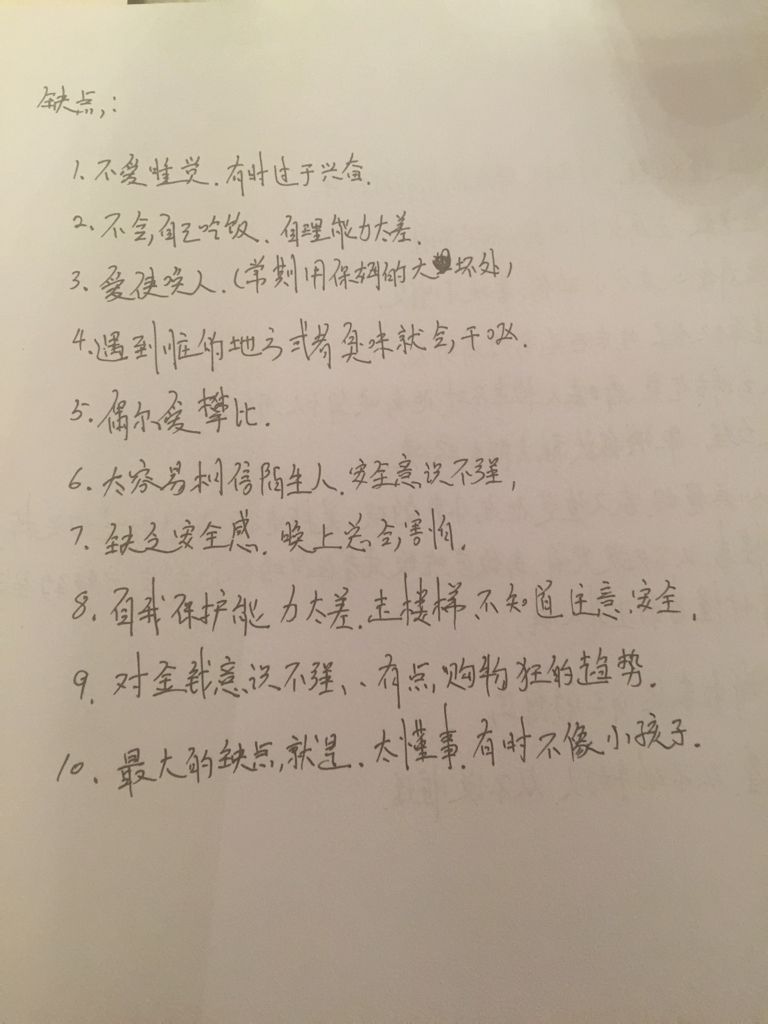 缺点：
1. 不爱睡觉．有时过于兴奋．
2. 不会自己吃饭．自理能力太差．
3. 爱使唤人．(常期用保姆的大坏处)
4. 遇到脏的地方或者臭味就会干呕．
5. 偶尔爱攀比．
6. 太容易相信陌生人．安全意识不强，
7. 缺乏安全感．晚上总会害怕．
8. 自我保护能力太差．走楼梯不知道注意安全．
9. 对金钱意识不强、有点购物狂的趋势．
10. 最大的缺点就是．太懂事．有时不像小孩子．